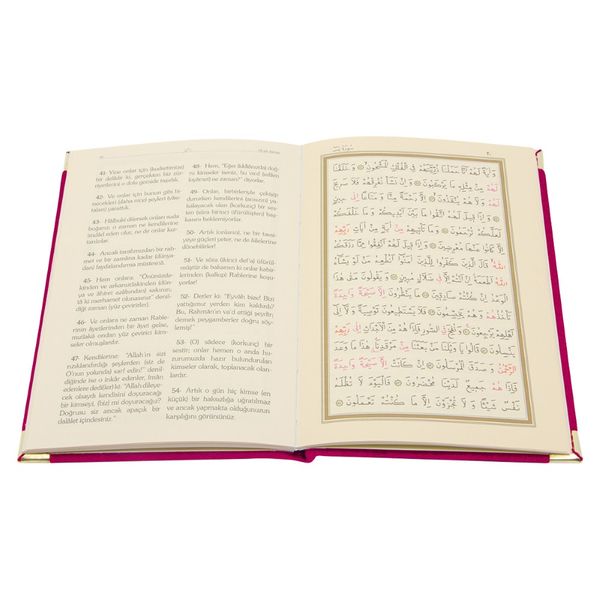 41- Yine onlar için (kudretimize)
bir delildir ki, gerçekten biz
zürriyetlerini o dolu gemide taşıdık.
42- Ve bunun gibi
yarattık.
43- Hâlbuki dilersek onları suda
boğarız; o zaman ne kendilerine
imdâd eden olur, ne de onlar
44- Ancak tarafımızdan bir
met ve bir zamana kadar
faydalandırma müstesnâ.
45- Hem onlara: "Önünüzde-
kinden ve arkanızdakinden
ve âhiret azâbından) sakının;
tâ ki merhamet olunasınız"
diği zaman (yüz çevirirler).
46- Ve onlara ne zaman Rable-
rinin âyetlerinden bir âyet gelse,
mutlaka ondan yüz çevirici kim-
seler olmuşlardır.
47- Kendilerine: "Allah'ın sizi
rızıklandırdığı şeylerden (siz de
O'nun yolunda) sarf edin!" denil-
diğinde ise o inkâr edenler, îmân
edenlere dedi(ler) ki: "Allah dileye-
cek olsaydı kendisini doyuracağı
bir kimseyi, (biz) mi doyuracağız?
Doğrusu siz ancak apaçık bir
dalâlet içindesiniz."
48- Hem, "Eğer (iddiânızda) doğ-
ru kimseler iseniz, bu va'd (edilen
ne zaman?" diyorlar.
49- Onlar, birbirleriyle çekişip
dururlarken kendilerini (ansızın)
ya-
kalayacak olan (korkunç) bir ses-
ten (sûra birinci üfürülüşten) baş-
kasını beklemiyorlar.
50- Artık (onlar) ne bir tavsi-
yeye güçleri yeter, ne de âilelerine
dönebilirler!
51- Ve sûra (ikinci def'a) üfürül-
müştür de bakarsın ki onlar kabir-
lerinden (kalkıp) Rablerine koşu-
52- Derler ki: "Eyvâh bize! Bizi
yattığımız yerden kim kaldırdı?
Bu, Rahmân'ın va'd ettiği şeydir;
demek peygamberler doğru söy-
lemiş!"
53- (O) sâdece (korkunç) bir
sestir; onlar hemen o anda hu-
zûrumuzda hazır bulundurulan
kimseler olarak, toplanacak olan-
lardır.
54- Artık o gün hiç kimse (en
küçük) bir haksızlığa uğratılmaz
ve ancak yapmakta olduğunuzun
karşılığını görürsünüz.
وَاٰيَةٌ لَهُمْ اَنَّا حَمَلْنَا ذُرِّيَّتَهُمْ فِي الْفُلْكِ الْمَشْحُونِ وَخَلَقْنَا
لَهُمْ مِنْ مِثْلِهِ مَا يَرْكَبُونَ وَاِنْ نَشَأْ نُغْرِقْهُمْ فَلَا صَرِيخَ
لَهُمْ وَلَا هُمْ يُنْقَذُونَ اِلَّا رَحْمَةً مِنَّا وَمَتَاعًا اِلٰى
حِينٍ وَاِذَا قِيلَ لَهُمُ اتَّقُوا مَا بَيْنَ اَيْدِيكُمْ وَمَا خَلْفَكُمْ
لَعَلَّكُمْ تُرْحَمُونَ وَمَا تَأْتِيهِمْ مِنْ اٰيَةٍ مِنْ اٰيَاتِ رَبِّهِمْ
اِلَّا كَانُوا عَنْهَا مُعْرِضِينَ وَاِذَا قِيلَ لَهُمْ اَنْفِقُوا مِمَّا رَزَقَكُمُ
اللّٰهُ قَالَ الَّذِينَ كَفَرُوا لِلَّذِينَ اٰمَنُوا اَنُطْعِمُ مَنْ لَوْ يَشَاءُ
اللّٰهُ اَطْعَمَهُ اِنْ اَنْتُمْ اِلَّا فِي ضَلَالٍ مُبِينٍ وَيَقُولُونَ مَتٰى هٰذَا
الْوَعْدُ اِنْ كُنْتُمْ صَادِقِينَ مَا يَنْظُرُونَ اِلَّا صَيْحَةً وَاحِدَةً
تَأْخُذُهُمْ وَهُمْ يَخِصِّمُونَ فَلَا يَسْتَطِيعُونَ تَوْصِيَةً وَلَا اِلٰى
اَهْلِهِمْ يَرْجِعُونَ وَنُفِخَ فِي الصُّورِ فَاِذَا هُمْ مِنَ الْاَجْدَاثِ اِلٰى رَبِّهِمْ
يَنْسِلُونَ قَالُوا يَا وَيْلَنَا مَنْ بَعَثَنَا مِنْ مَرْقَدِنَا هٰذَا مَا وَعَدَ
الرَّحْمٰنُ وَصَدَقَ الْمُرْسَلُونَ اِنْ كَانَتْ اِلَّا صَيْحَةً وَاحِدَةً
فَاِذَا هُمْ جَمِيعٌ لَدَيْنَا مُحْضَرُونَ فَالْيَوْمَ لَا تُظْلَمُ
نَفْسٌ شَيْئًا وَلَا تُجْزَوْنَ اِلَّا مَا كُنْتُمْ تَعْمَلُونَ